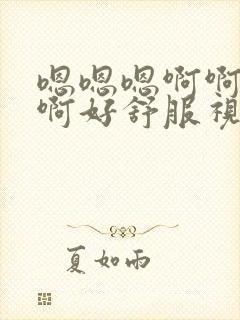 嗯嗯嗯啊啊
啊好舒服視
夏如雨